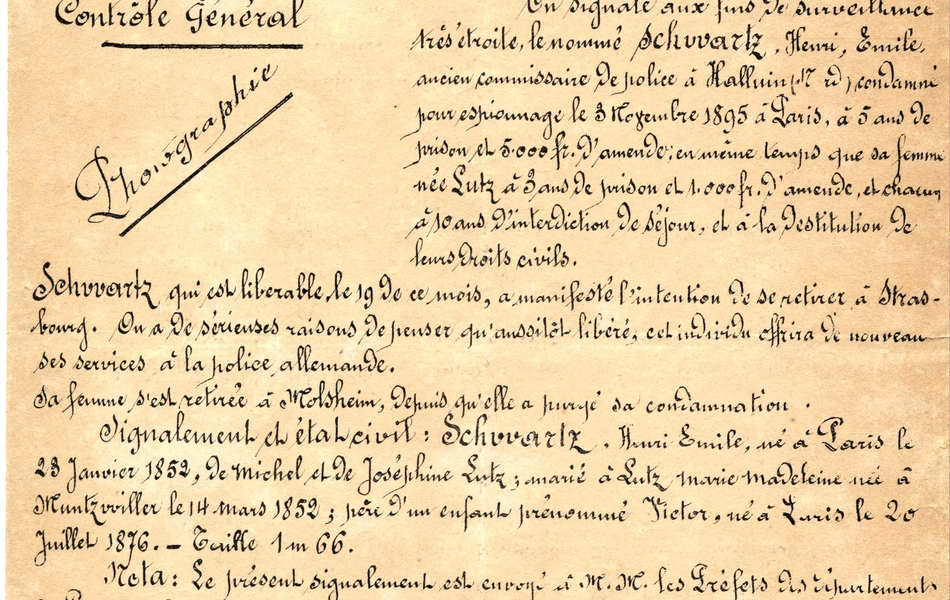 Contrôle Général
Photographie
On signale aux fins de surveillance
très étroite, le nommé Schwartz, Henri, Emile,
ancien commissaire de police à Halluin (Nrd) condamné
pour espionnage le 3 Novembre 1895 à Paris, à 5 ans de
prison et 5.000 fr. d'amende, en même temps que sa femme
née Lutz à 3 ans de prison et 1.000 fr. d'amende, et chacun
à 10 ans d'interdiction de séjour, et à la destitution de
leurs droits civils.
Schwartz qui est libérable le 19 de ce mois, a manifesté l'intention de se retirer à Stras-
bourg. On a de sérieuses raisons de penser qu'aussitôt libéré, cet individu offrira de nouveau
ses services à la police allemande.
Sa femme s'est retirée à Molsheim, depuis qu'elle a purgé sa condamnation.
Signalement et état civil : Schwartz, Henri Emile, né à Paris le
23 Janvier 1852, de Michel et de Joséphine Lutz ; marié à Lutz marie madeleine née à
Muntzwiller le 14 mars 1852 ; père d'un enfant prénommé Victor, né à Paris le 20
Juillet 1876. — Taille 1m66.
Nota : Le présent signalement est envoyé à M.M. les Préfets des départements